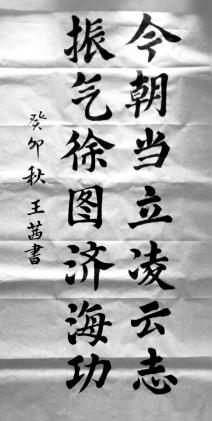 今朝当立凌云志
振气徐图济海功
癸卯秋王茜书